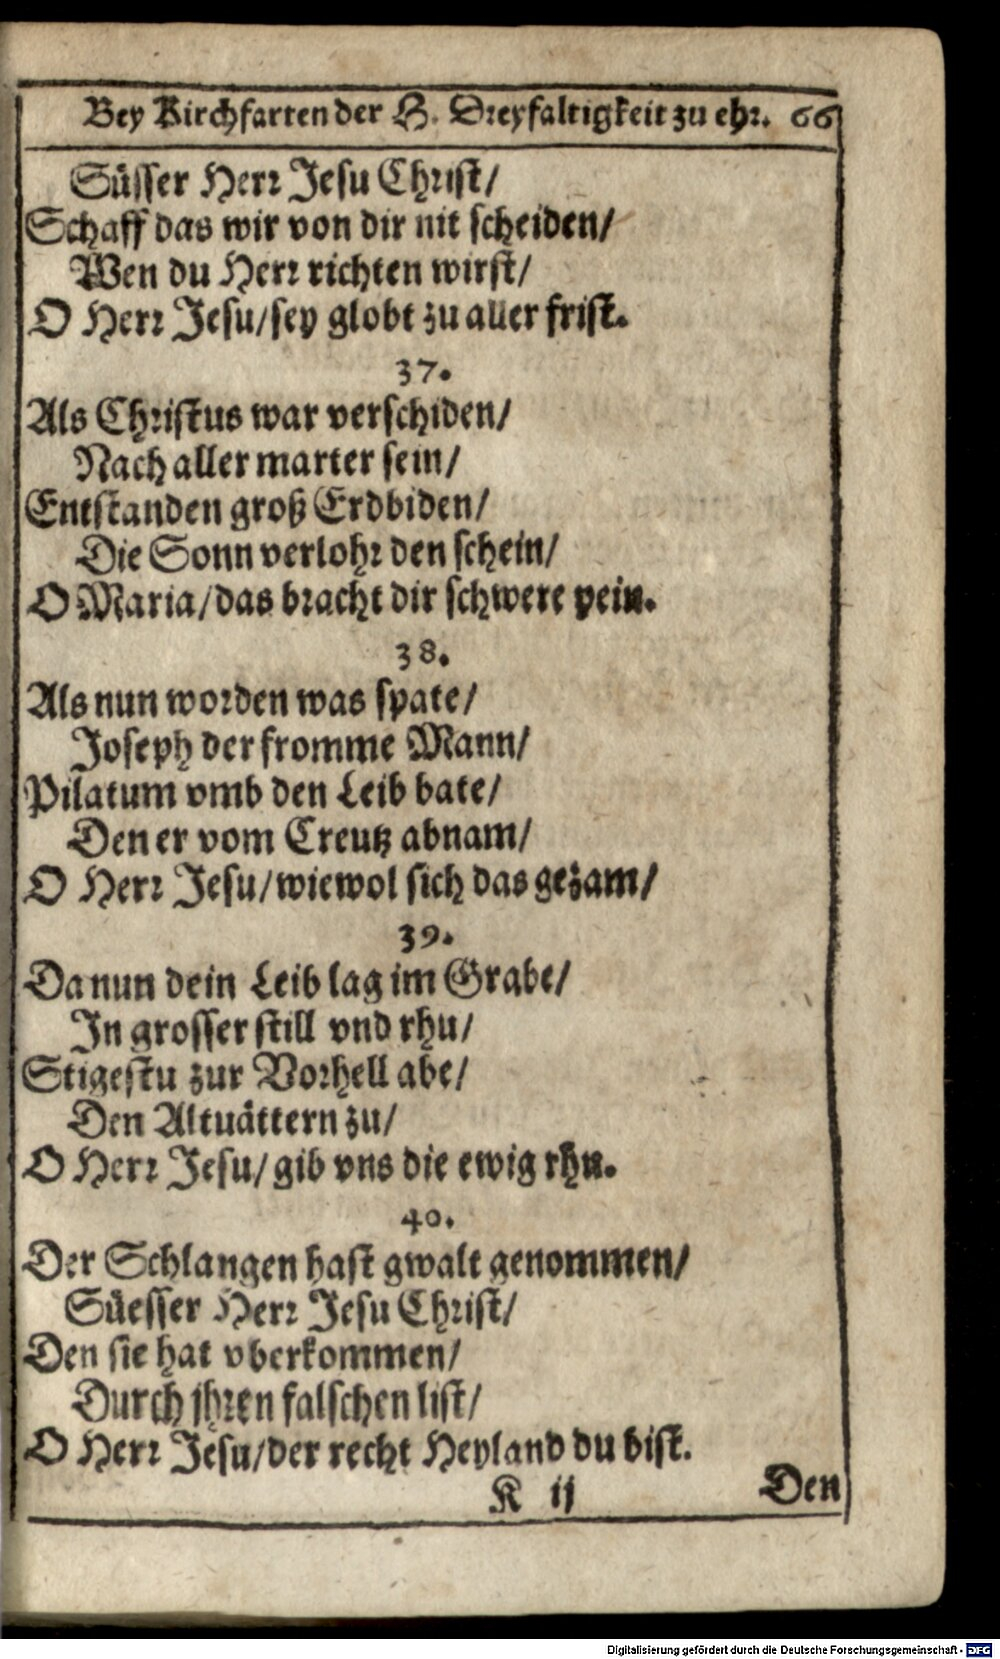 Bey Kirchfarten der H. Dreyfaltigkeit zu ehr. 66
Süsser Herr Jesu Christ/
Schaff das wir von dir nit scheiden/
Wen du Herr richten wirst/
O Herr Jesu/sey globt zu aller frist.
37.
Als Christus war verschiden/
Nach aller marter sein/
Entstanden groß Erdbiden/
Die Sonn verlohr den schein/
O Maria/das bracht dir schwere pein.
38.
Als nun worden was spate/
Joseph der fromme Mann/
Pilatum vmb den Leib bate/
Den er vom Creutz abnam/
O Herr Jesu/wiewol sich das gezam/
39.
Da nun dein Leib lag im Grabe/
In grosser still vnd rhu/
Stigestu zur Vorhell abe/
Den Altuättern zu/
O Herr Jesu/gib vns die ewig rhu.
40.
Der Schlangen hast gwalt genommen/
Süesser Herr Jesu Christ/
Den sie hat vberkommen/
Durch jhren falschen list/
O Herr Jesu/der recht Heyland du bist.
K ij Den
Digitalisierung gefördert durch die Deutsche Forschungsgemeinschaft - DFG